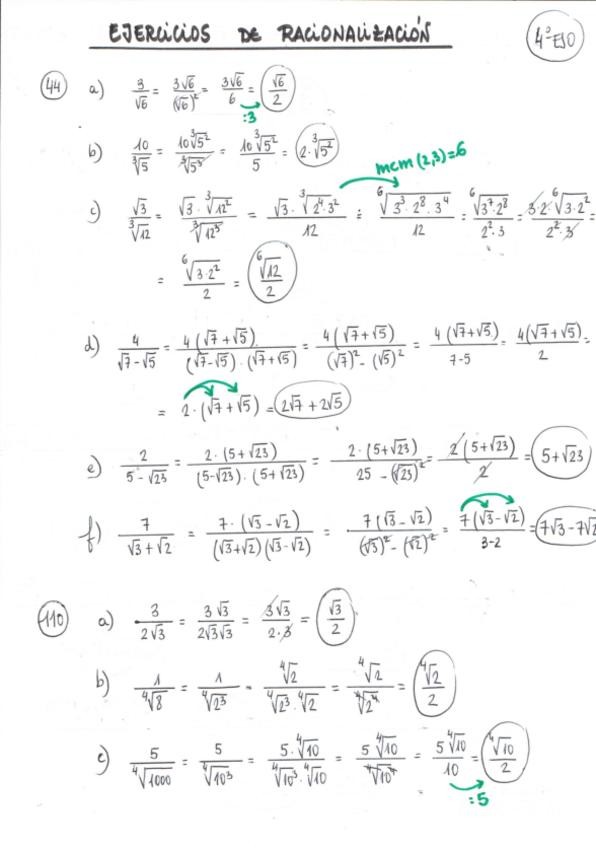 EJERCICIOS DE RACIONALIZACIÓN
4º ESO
44 a) 3/√6 = 3√6/(√6)² = 3√6/6 = √6/2
:3
b) 10/∛5 = 10∛5²/∛5³ = 10∛5²/5 = 2·∛5²
mcm(2,3)=6
c) √3/∛12 = √3·∛12²/∛12³ = √3·∛(2⁴·3²)/12 = ⁶√(3³·2⁸·3⁴)/12 = ⁶√(3⁷·2⁸)/(2²·3) = 3·2·⁶√(3·2²)/(2²·3)
= ⁶√(3·2²)/2 = ⁶√12/2
d) 4/(√7-√5) = 4(√7+√5)/((√7-√5)·(√7+√5)) = 4(√7+√5)/((√7)²-(√5)²) = 4(√7+√5)/(7-5) = 4(√7+√5)/2 =
= 2·(√7+√5) = 2√7+2√5
e) 2/(5-√23) = 2·(5+√23)/((5-√23)·(5+√23)) = 2·(5+√23)/(25-(√23)²) = 2(5+√23)/2 = 5+√23
f) 7/(√3+√2) = 7·(√3-√2)/((√3+√2)(√3-√2)) = 7(√3-√2)/((√3)²-(√2)²) = 7(√3-√2)/(3-2) = 7√3-7√2
110 a) 3/(2√3) = 3√3/(2√3√3) = 3√3/(2·3) = √3/2
b) 1/⁴√8 = 1/⁴√2³ = ⁴√2/(⁴√2³·⁴√2) = ⁴√2/⁴√2⁴ = ⁴√2/2
c) 5/⁴√1000 = 5/⁴√10³ = 5·⁴√10/(⁴√10³·⁴√10) = 5⁴√10/⁴√10⁴ = 5⁴√10/10 = ⁴√10/2
:5